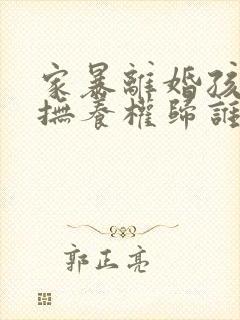 家暴離婚孩
撫養權歸誰
郭正亮